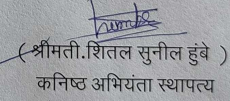 ( श्रीमती.शितल सुनील हुंबे )
कनिष्ठ अभियंता स्थापत्य